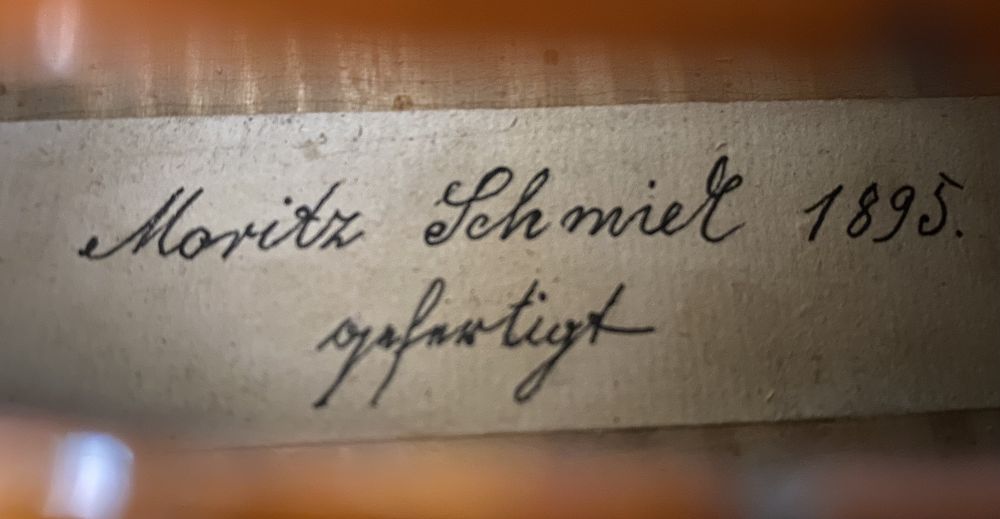 Moritz Schmidt 1895.
gefertigt